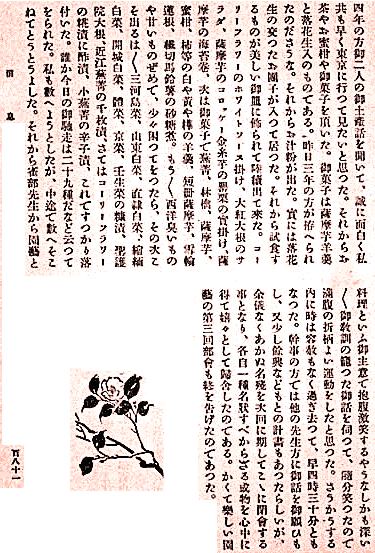 四年の方御二人の御土產話を聞いて、誠に面白く私
共も早く東京に行つて見たいと思つた。それからお
茶やお蜜柑や御菓子を頂いた。御菓子は薩摩芋羊羹
と落花生入のものである。昨日三年の方が拵へられ
たのださうな。それからお汁粉が出た。實には落花
生の交つたお團子が入て居つた。それから試食す
るものが美しいお皿に飾られて陸續出て來た。コー
リーフラワーのホワイトソース掛け、大紅大根のサ
ラダ、薩摩芋のコロッケー金糸芋の罌粟の實掛け、薩
摩芋の海苔卷、次は御菓子で蕪菁、林檎、薩摩芋、
蜜柑、柿等の白や黄や樺の羊羹、短冊薩摩芋、雪輪
蓮根、纎切馬鈴薯の砂糖煮。もう〳〵西洋臭いもの
や甘いもの許めで、少々困つてをつたら、その次こ
そ出るは〳〵三河島菜、山東白菜、直隷白菜、縮緬
白菜、開城白菜、體菜、京菜、壬生菜の糠漬、聖護
院大根、近江蕪菁の千枚漬、さてはコーリーフラワー
の糀漬に酢漬、小蕪菁の辛子漬、これですつかり落
付いた。誰かゞ今日の御馳走は二十九種だなど云つて
をられた。私も數へようとしたが、中途で數へそこ
ねてとうとうよした。それから雀部先生から園藝と
消息
料理といふ御主意で抱腹激笑するやうなしかも深い
〳〵御敎訓の籠つた御話を伺つて、隨分笑つたので
滿腹の折柄よい運動をしたと思つた。さうかうする
内に時は容赦もなく過ぎ去つて、早四時三十分とも
なつた。幹事の方では他の先生方に御話を御願ひも
し、又少し餘興などもとの計畫もあつたらしいが、
余儀なくあかぬ名殘を次回に期してこゝに閉會する
事となり、各自一種名狀すべからざる或物を心中に
得て嬉々として歸舍したのである。かくて樂しい園
藝の第三回部會も終を告げたのであつた。
百八十一